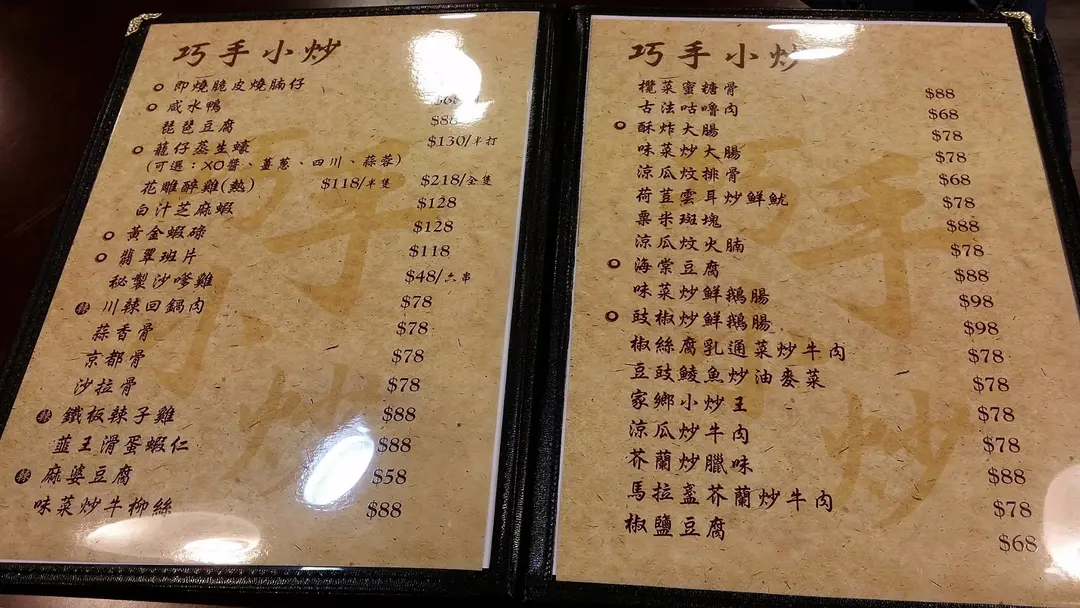 巧手小炒
即燒脆皮燒腩仔
咸水鴨
琵琶豆腐 $88
龍仔蒸生蠔 $130/半打
(可選：XO醬、薑蔥、四川、蒜蓉)
花雕醉雞(熱) $118/半隻 $218/全隻
白汁芝麻蝦 $128
黃金蝦碌 $128
翡翠班片 $118
秘製沙嗲雞 $48/六串
辣 川辣回鍋肉 $78
蒜香骨 $78
京都骨 $78
沙拉骨 $78
辣 鐵板辣子雞 $88
韮王滑蛋蝦仁 $88
辣 麻婆豆腐 $58
味菜炒牛柳絲 $88
巧手小炒
欖菜蜜糖骨 $88
古法咕嚕肉 $68
酥炸大腸 $78
味菜炒大腸 $78
涼瓜炆排骨 $68
荷荳雲耳炒鮮魷 $78
粟米斑塊 $88
涼瓜炆火腩 $78
海棠豆腐 $88
味菜炒鮮鵝腸 $98
豉椒炒鮮鵝腸 $98
椒絲腐乳通菜炒牛肉 $78
豆豉鯪魚炒油麥菜 $78
家鄉小炒王 $78
涼瓜炒牛肉 $78
芥蘭炒臘味 $88
馬拉盞芥蘭炒牛肉 $78
椒鹽豆腐 $68